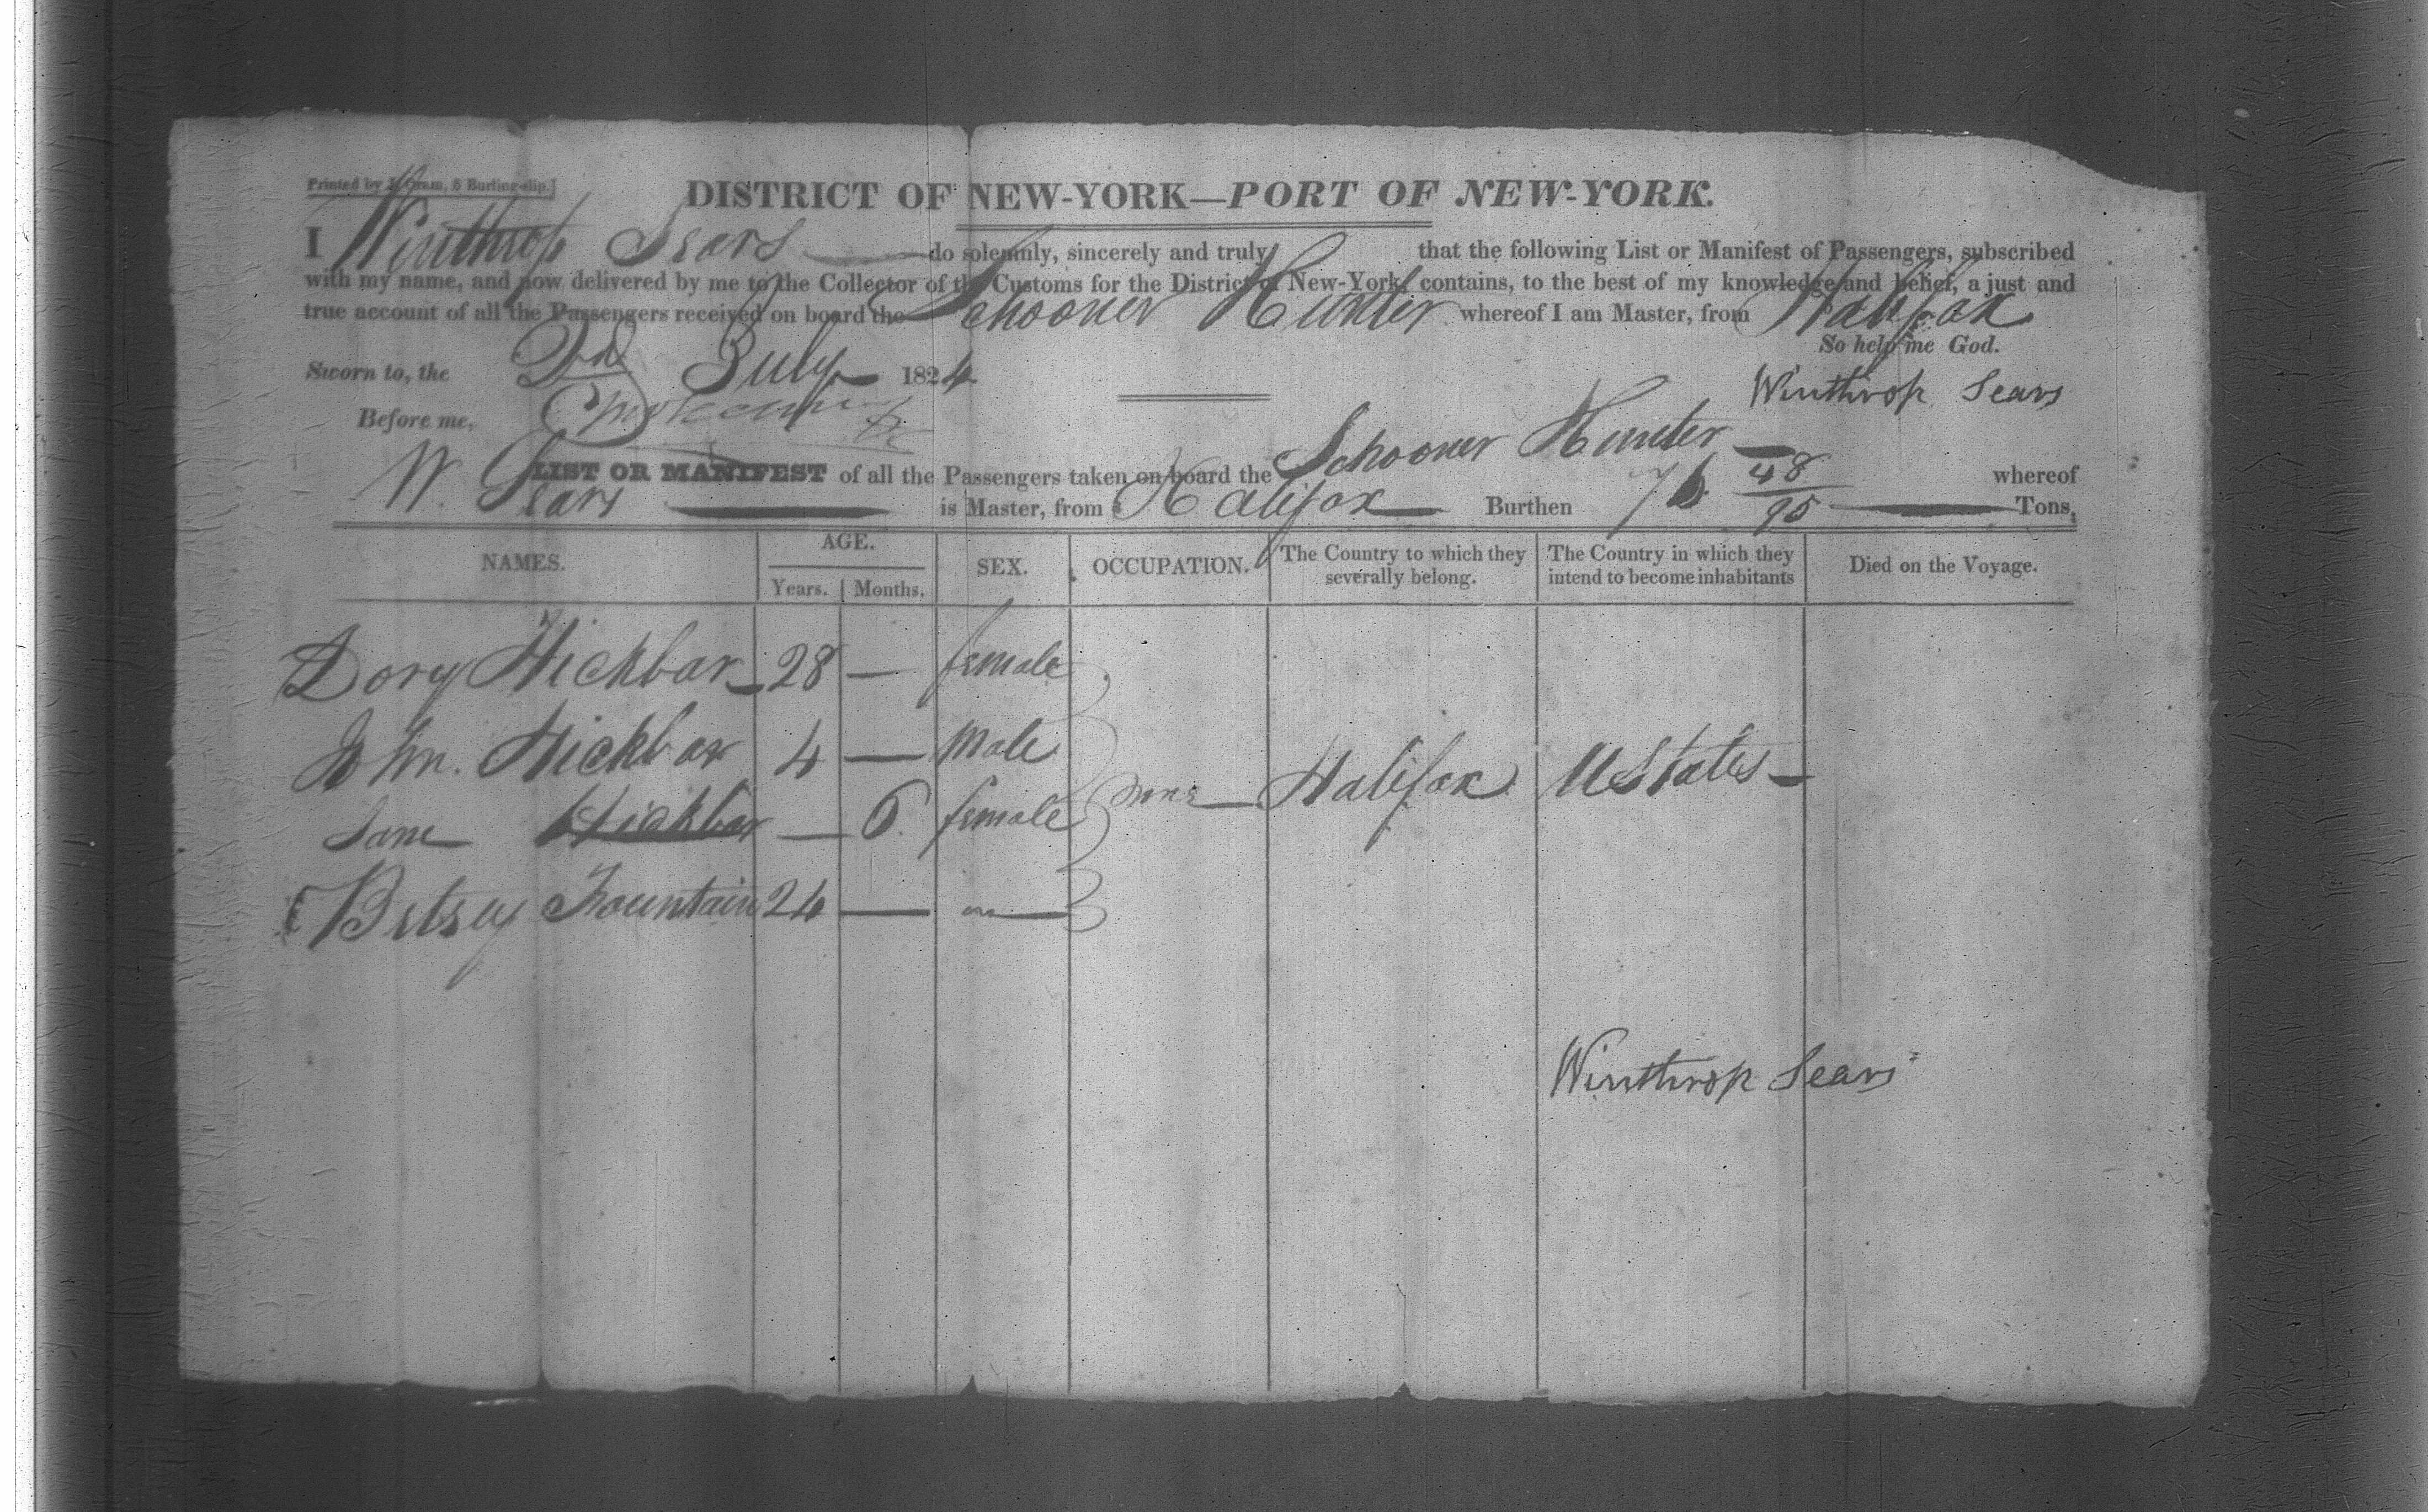 Printed by J. Oram, 5 Burling-slip.]
DISTRICT OF NEW-YORK—PORT OF NEW-YORK.
I Winthrop Sears do solemnly, sincerely and truly that the following List or Manifest of Passengers, subscribed
with my name, and now delivered by me to the Collector of the Customs for the District of New-York, contains, to the best of my knowledge and belief, a just and
true account of all the Passengers received on board the Schooner Hunter whereof I am Master, from Halifax
So help me God.
Sworn to, the 2d July 1824
Winthrop Sears
Before me,
LIST OR MANIFEST of all the Passengers taken on board the Schooner Hunter whereof
W. Sears is Master, from Halifax Burthen 76 48/95 Tons,
NAMES. AGE. Years. Months. SEX. OCCUPATION. The Country to which they severally belong. The Country in which they intend to become inhabitants Died on the Voyage.
Dory Hickbar 28 — female
John Hickbar 4 — Male
Jane Hickbar — 6 female none Halifax U States
Betsy Fountain 24 —
Winthrop Sears